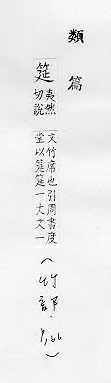 類篇
筵
夷然
切說
文竹席也引周書度
堂以筵筵一丈文一
(竹部.